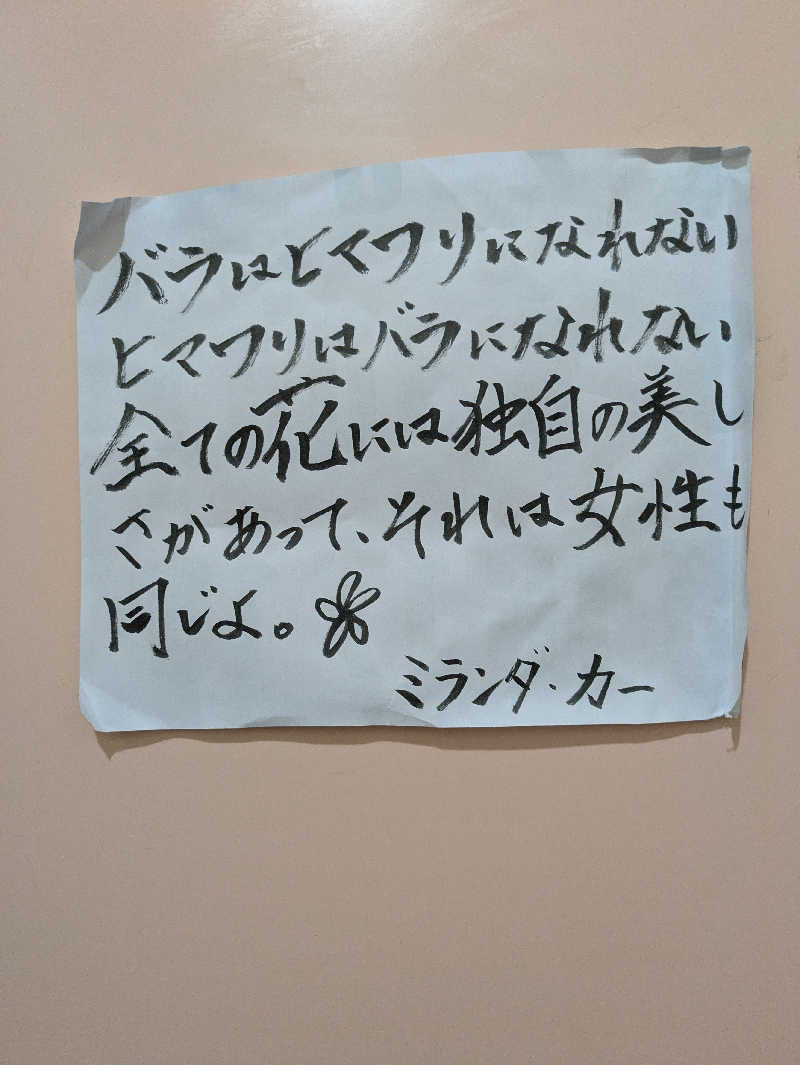 バラはヒマワリになれない
ヒマワリはバラになれない
全ての花には独自の美し
さがあって、それは女性も
同じよ。
ミランダ・カー